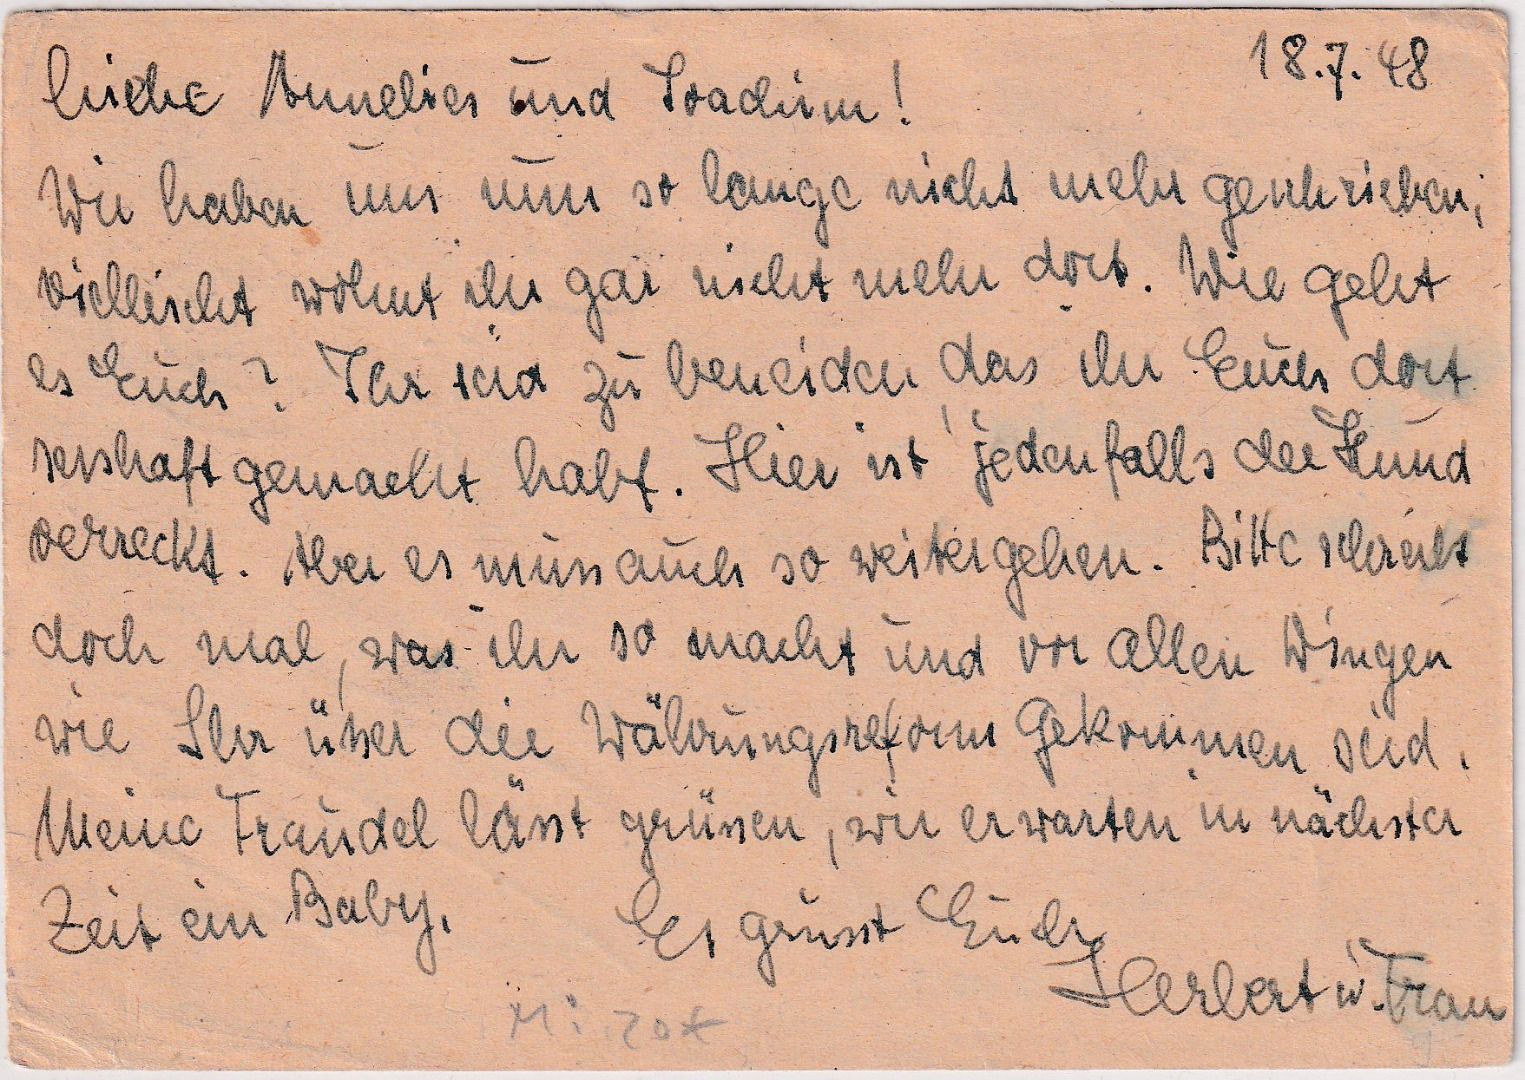 18.7.48
Liebe Annelies und Joachim!
Wir haben uns nun so lange nicht mehr geschrieben,
vielleicht wohnt ihr gar nicht mehr dort. Wie geht
es Euch? Ihr seid zu beneiden das ihr Euch dort
sesshaft gemacht habt. Hier ist jedenfalls der Hund
verreckt. Aber es muss auch so weitergehen. Bitte schreibt
doch mal, was ihr so macht und vor allen Dingen
wie Ihr über die Währungsreform gekommen seid.
Meine Traudel lässt grüssen, wir erwarten in nächster
Zeit ein Baby. Es grüsst Euch
Herbert u. Frau